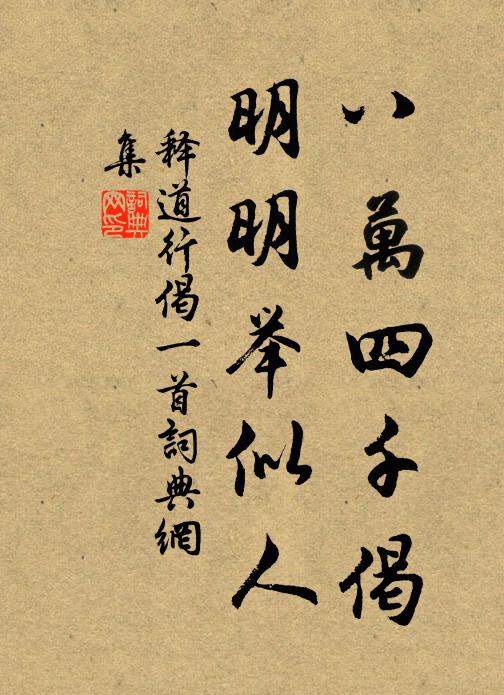 八萬四千偈
明明举似人
释道行偈一首詞典網
集
詞典
网印